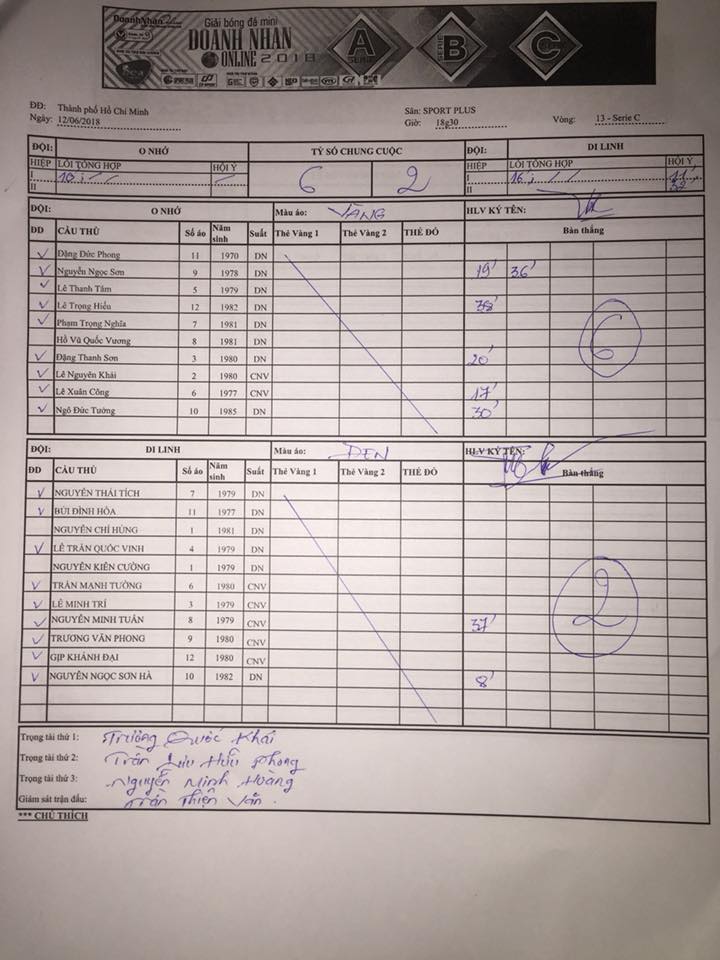 DoanhNhan
Giải bóng đá mini
DOANH NHAN
ONLINE 2018
SERIE A
SERIE B
SERIE C
ĐĐ: Thành phố Hồ Chí Minh
Sân: SPORT PLUS
Ngày: 12/06/2018
Giờ: 18g30
Vòng: 13 - Serie C
ĐỘI: O NHỚ TỶ SỐ CHUNG CUỘC ĐỘI: DI LINH
HIỆP LỖI TỔNG HỢP HỘI Ý 6 2 HIỆP LỖI TỔNG HỢP HỘI Ý
I I
II II
ĐỘI: O NHỚ Màu áo: VÀNG HLV KÝ TÊN:
ĐD CẦU THỦ Số áo Năm sinh Suất Thẻ Vàng 1 Thẻ Vàng 2 THẺ ĐỎ Bàn thắng
✓ Đặng Đức Phong 11 1970 DN
✓ Nguyễn Ngọc Sơn 9 1978 DN 19' 36'
✓ Lê Thanh Tâm 5 1979 DN
✓ Lê Trọng Hiếu 12 1982 DN 38'
✓ Phạm Trọng Nghĩa 7 1981 DN
Hồ Vũ Quốc Vương 8 1981 DN
✓ Đặng Thanh Sơn 3 1980 DN 20'
✓ Lê Nguyên Khải 2 1980 CNV
✓ Lê Xuân Công 6 1977 CNV 17'
✓ Ngô Đức Tưởng 10 1985 DN 30'
6
ĐỘI: DI LINH Màu áo: ĐEN HLV KÝ TÊN:
ĐD CẦU THỦ Số áo Năm sinh Suất Thẻ Vàng 1 Thẻ Vàng 2 THẺ ĐỎ Bàn thắng
✓ NGUYỄN THÁI TÍCH 7 1979 DN
✓ BÙI ĐÌNH HÒA 11 1977 DN
NGUYỄN CHÍ HÙNG 1 1981 DN
✓ LÊ TRẦN QUỐC VINH 4 1979 DN
NGUYỄN KIÊN CƯỜNG 1 1979 DN
✓ TRẦN MẠNH TƯỜNG 6 1980 CNV
✓ LÊ MINH TRÍ 3 1979 CNV
✓ NGUYỄN MINH TUẤN 8 1979 CNV 37'
✓ TRƯƠNG VĂN PHONG 9 1980 CNV
✓ GỊP KHÁNH ĐẠI 12 1980 CNV
✓ NGUYỄN NGỌC SƠN HÀ 10 1982 DN 8'
2
Trọng tài thứ 1: Trương Quốc Khái
Trọng tài thứ 2: Trần Lưu Hữu Phong
Trọng tài thứ 3: Nguyễn Minh Hoàng
Giám sát trận đấu: Trần Thiện Văn
*** CHÚ THÍCH